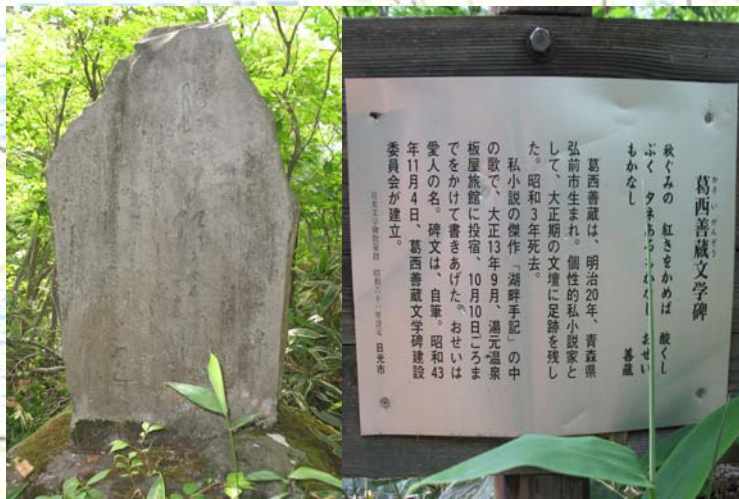 かさいぜんぞう
葛西善蔵文学碑
秋ぐみの 紅きをかめば 酸くし
ぶく タネあるもかなし おせい
もかなし 善蔵
葛西善蔵は、明治20年、青森県
弘前市生まれ。個性的私小説家と
して、大正期の文壇に足跡を残し
た。昭和3年死去。
私小説の傑作「湖畔手記」の中
の歌で、大正13年9月、湯元温泉
板屋旅館に投宿、10月10日ごろま
でをかけて書きあげた。おせいは
愛人の名。碑文は、自筆。昭和43
年11月4日、葛西善蔵文学碑建設
委員会が建立。
日光市